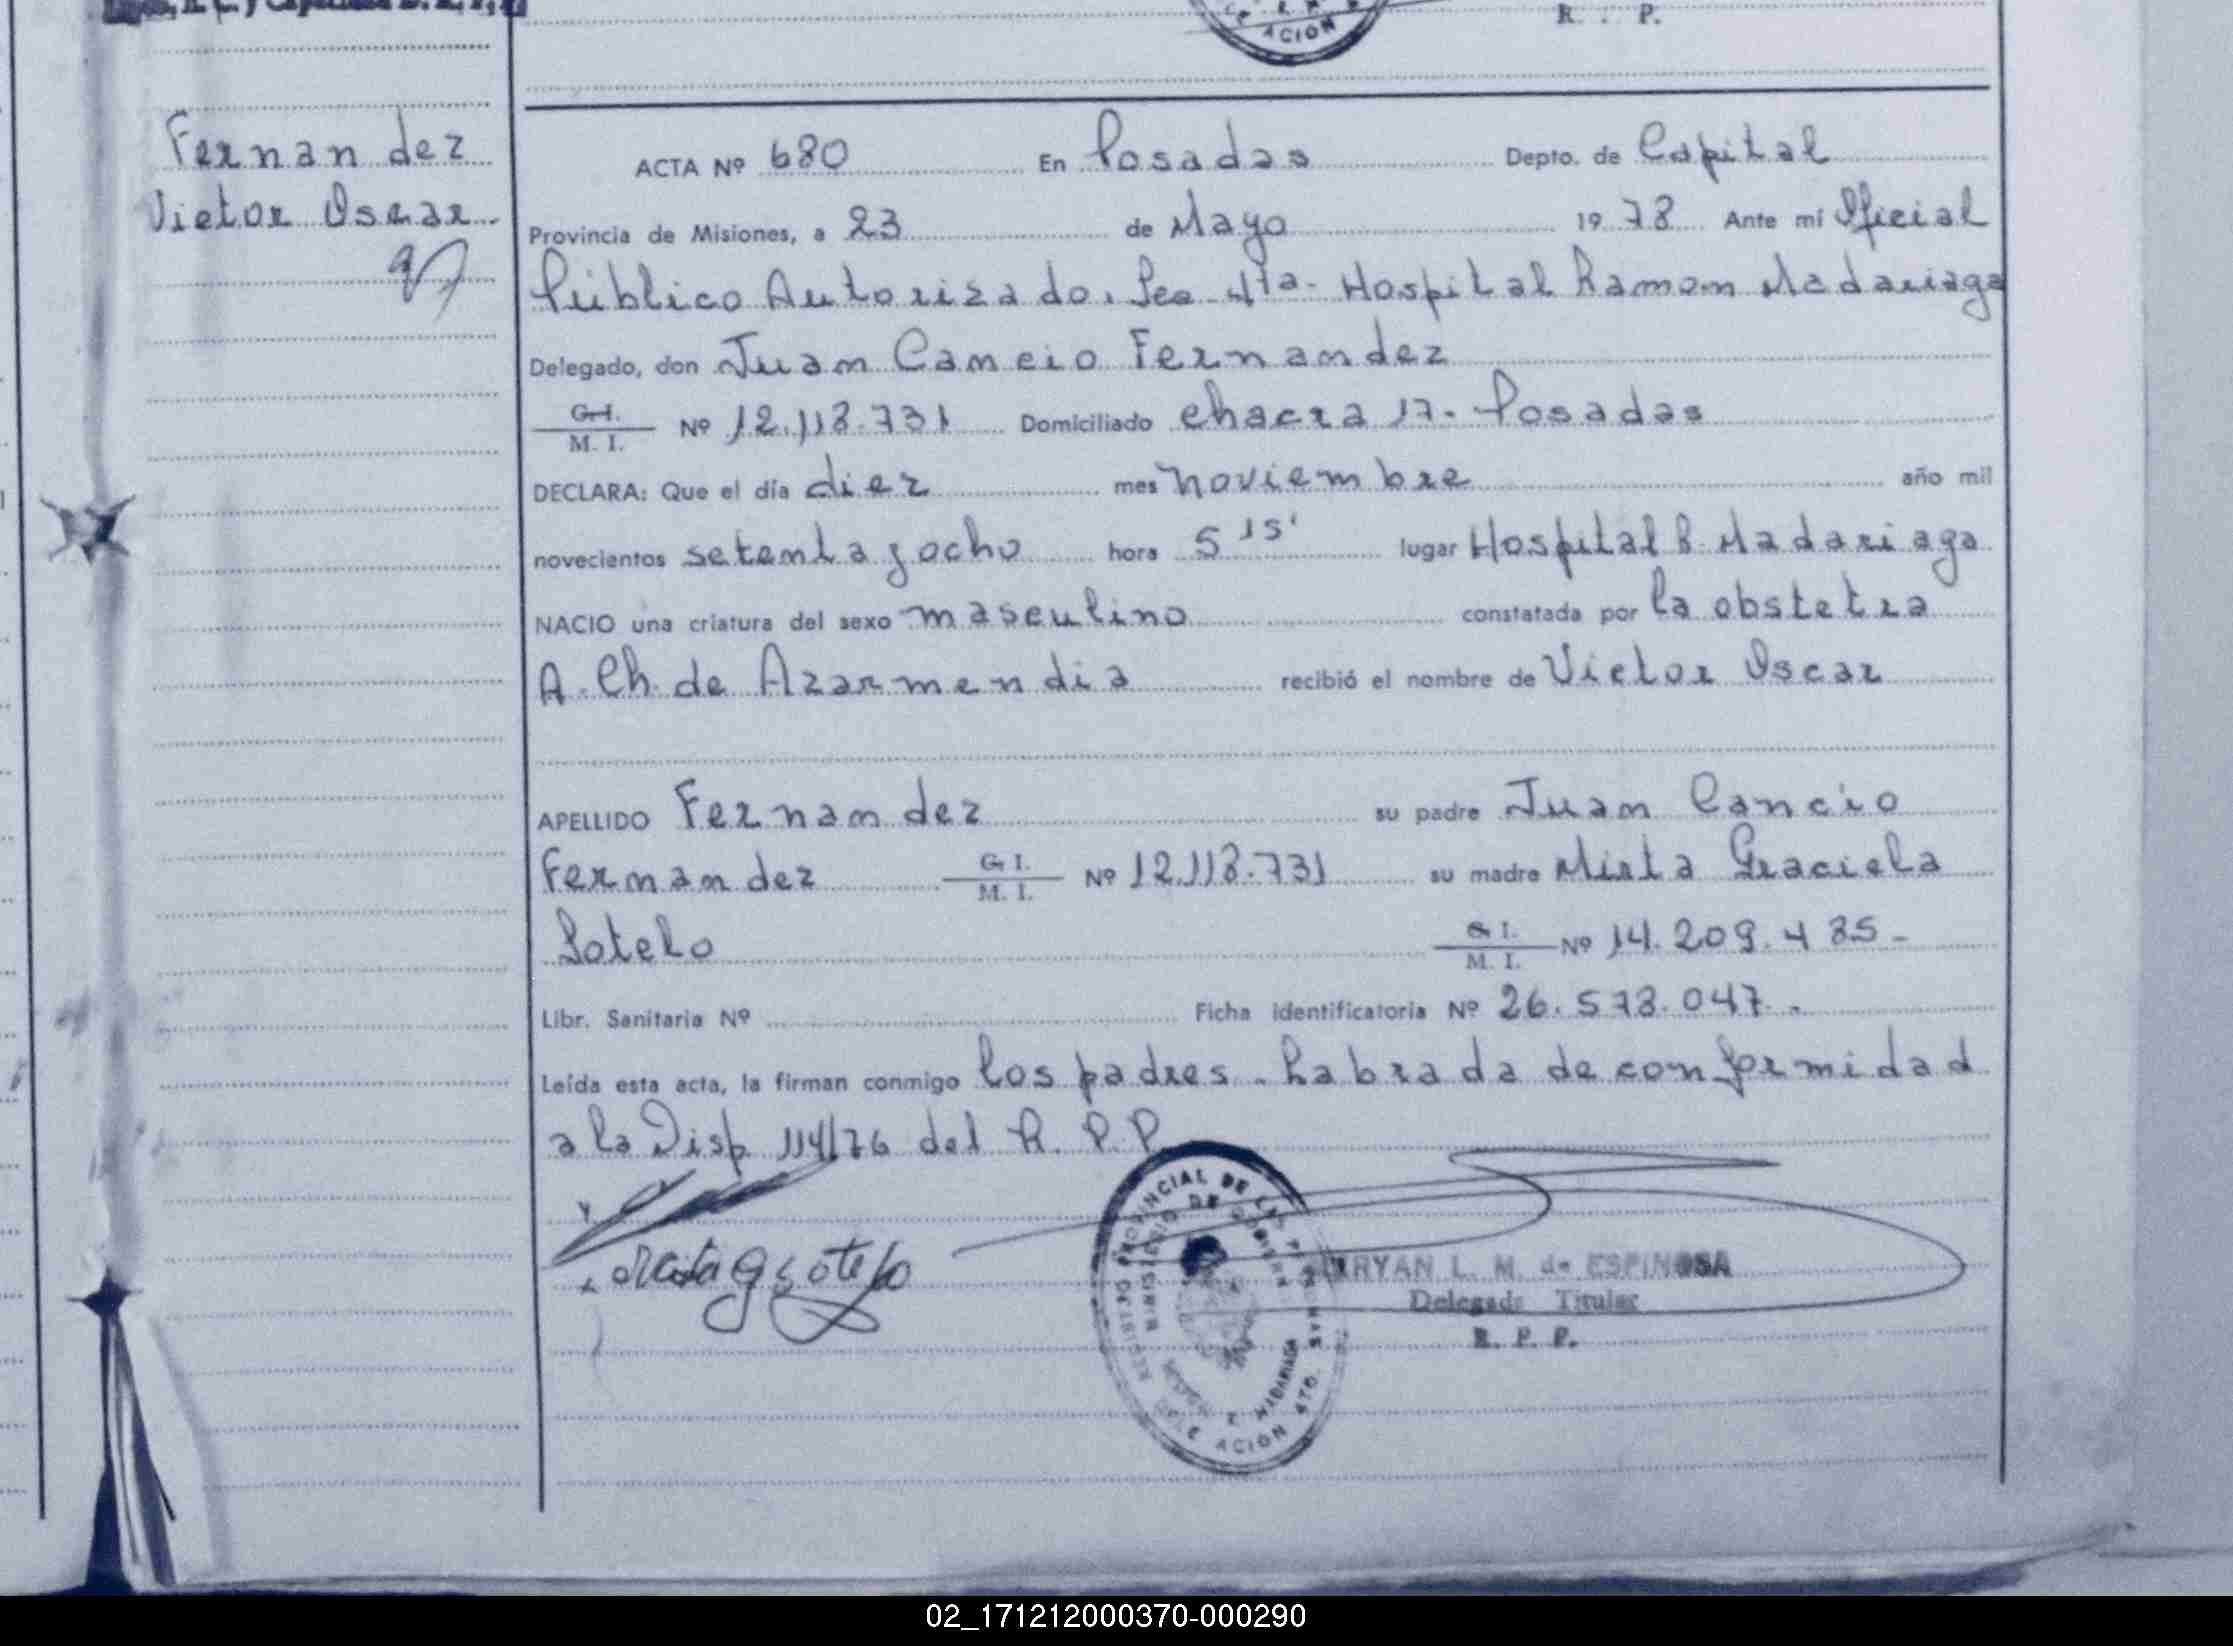 R. . P.
ACION
Fernandez
Victor Oscar
ACTA Nº 680 En Posadas Depto. de Capital
Provincia de Misiones, a 23 de Mayo 1978 Ante mí Oficial
Público Autorizado. Sec 4ta. Hospital Ramon Madariaga
Delegado, don Juan Cancio Fernandez
G.I. M. I. Nº 12.118.731 Domiciliado chacra 17. Posadas
DECLARA: Que el día diez mes noviembre año mil
novecientos setenta y ocho hora 5 15' lugar Hospital R. Madariaga
NACIO una criatura del sexo masculino constatada por la obstetra
A. Ch. de Azarmendia recibió el nombre de Victor Oscar
APELLIDO Fernandez su padre Juan Cancio
Fernandez G I. M. I. Nº 12.118.731 su madre Mirta Graciela
Sotelo I. M. I. Nº 14.209.485-
Libr. Sanitaria Nº Ficha identificatoria Nº 26.578.047.-
Leída esta acta, la firman conmigo los padres. Labrada de conformidad
a la Disp. 114/76 del R. P. P.
Mirta G Sotelo
PROVINCIAL DE LAS PERSONAS
MINISTERIO DE GOBIERNO
MADARIAGA
ACIÓN 4TO.
RYAN L. M. de ESPINOSA
Delegada Titular
R. P. P.
02_171212000370-000290